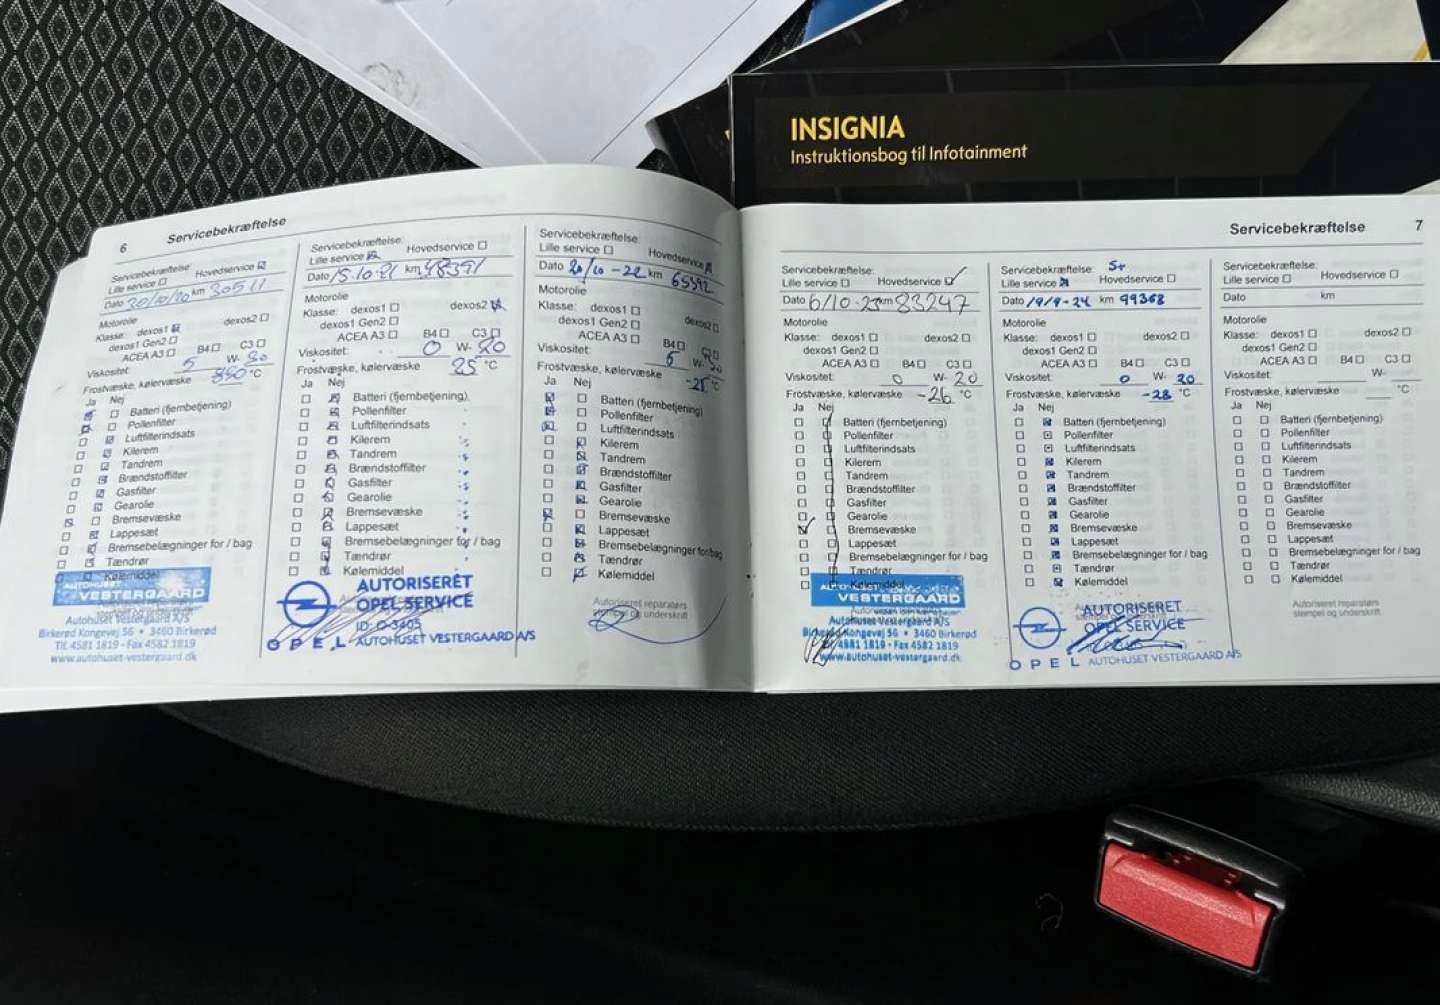 INSIGNIA
Instruktionsbog til Infotainment
6 Servicebekræftelse
Servicebekræftelse:
Lille service Hovedservice
Dato 20/10/20 km 30511
Motorolie
Klasse: dexos1 dexos2
dexos1 Gen2
ACEA A3 B4 C3
Viskositet: 5 W- 30
Frostvæske, kølervæske °C
Ja Nej
Batteri (fjernbetjening)
Pollenfilter
Luftfilterindsats
Kilerem
Tandrem
Brændstoffilter
Gasfilter
Gearolie
Bremsevæske
Lappesæt
Bremsebelægninger for / bag
Tændrør
Kølemiddel
AUTOHUSET
VESTERGAARD
Autohuset Vestergaard A/S
Birkerød Kongevej 56 • 3460 Birkerød
Tlf. 4581 1819 - Fax 4582 1819
www.autohuset-vestergaard.dk
Servicebekræftelse:
Lille service Hovedservice
Dato 15.10.21 km 48391
Motorolie
Klasse: dexos1 dexos2
dexos1 Gen2
ACEA A3 B4 C3
Viskositet: 0 W- 20
Frostvæske, kølervæske 25 °C
Ja Nej
Batteri (fjernbetjening)
Pollenfilter
Luftfilterindsats
Kilerem
Tandrem
Brændstoffilter
Gasfilter
Gearolie
Bremsevæske
Lappesæt
Bremsebelægninger for / bag
Tændrør
Kølemiddel
AUTORISERET
OPEL SERVICE
ID: O-3405
OPEL AUTOHUSET VESTERGAARD A/S
Servicebekræftelse:
Lille service Hovedservice
Dato 20/10-22 km 65392
Motorolie
Klasse: dexos1 dexos2
dexos1 Gen2
ACEA A3 B4 C3
Viskositet: 5 W- 30
Frostvæske, kølervæske -25 °C
Ja Nej
Batteri (fjernbetjening)
Pollenfilter
Luftfilterindsats
Kilerem
Tandrem
Brændstoffilter
Gasfilter
Gearolie
Bremsevæske
Lappesæt
Bremsebelægninger for / bag
Tændrør
Kølemiddel
Autoriseret reparatørs
stempel og underskrift
Servicebekræftelse 7
Servicebekræftelse:
Lille service Hovedservice
Dato 6/10-23 km 83247
Motorolie
Klasse: dexos1 dexos2
dexos1 Gen2
ACEA A3 B4 C3
Viskositet: 0 W- 20
Frostvæske, kølervæske -26 °C
Ja Nej
Batteri (fjernbetjening)
Pollenfilter
Luftfilterindsats
Kilerem
Tandrem
Brændstoffilter
Gasfilter
Gearolie
Bremsevæske
Lappesæt
Bremsebelægninger for / bag
Tændrør
Kølemiddel
AUTOHUSET
VESTERGAARD
Autohuset Vestergaard A/S
Birkerød Kongevej 56 • 3460 Birkerød
Tlf. 4581 1819 - Fax 4582 1819
www.autohuset-vestergaard.dk
Servicebekræftelse: S+
Lille service Hovedservice
Dato 19/9-24 km 99368
Motorolie
Klasse: dexos1 dexos2
dexos1 Gen2
ACEA A3 B4 C3
Viskositet: 0 W- 20
Frostvæske, kølervæske -28 °C
Ja Nej
Batteri (fjernbetjening)
Pollenfilter
Luftfilterindsats
Kilerem
Tandrem
Brændstoffilter
Gasfilter
Gearolie
Bremsevæske
Lappesæt
Bremsebelægninger for / bag
Tændrør
Kølemiddel
AUTORISERET
OPEL SERVICE
OPEL AUTOHUSET VESTERGAARD A/S
Servicebekræftelse:
Lille service Hovedservice
Dato km
Motorolie
Klasse: dexos1 dexos2
dexos1 Gen2
ACEA A3 B4 C3
Viskositet: W-
Frostvæske, kølervæske °C
Ja Nej
Batteri (fjernbetjening)
Pollenfilter
Luftfilterindsats
Kilerem
Tandrem
Brændstoffilter
Gasfilter
Gearolie
Bremsevæske
Lappesæt
Bremsebelægninger for / bag
Tændrør
Kølemiddel
Autoriseret reparatørs
stempel og underskrift